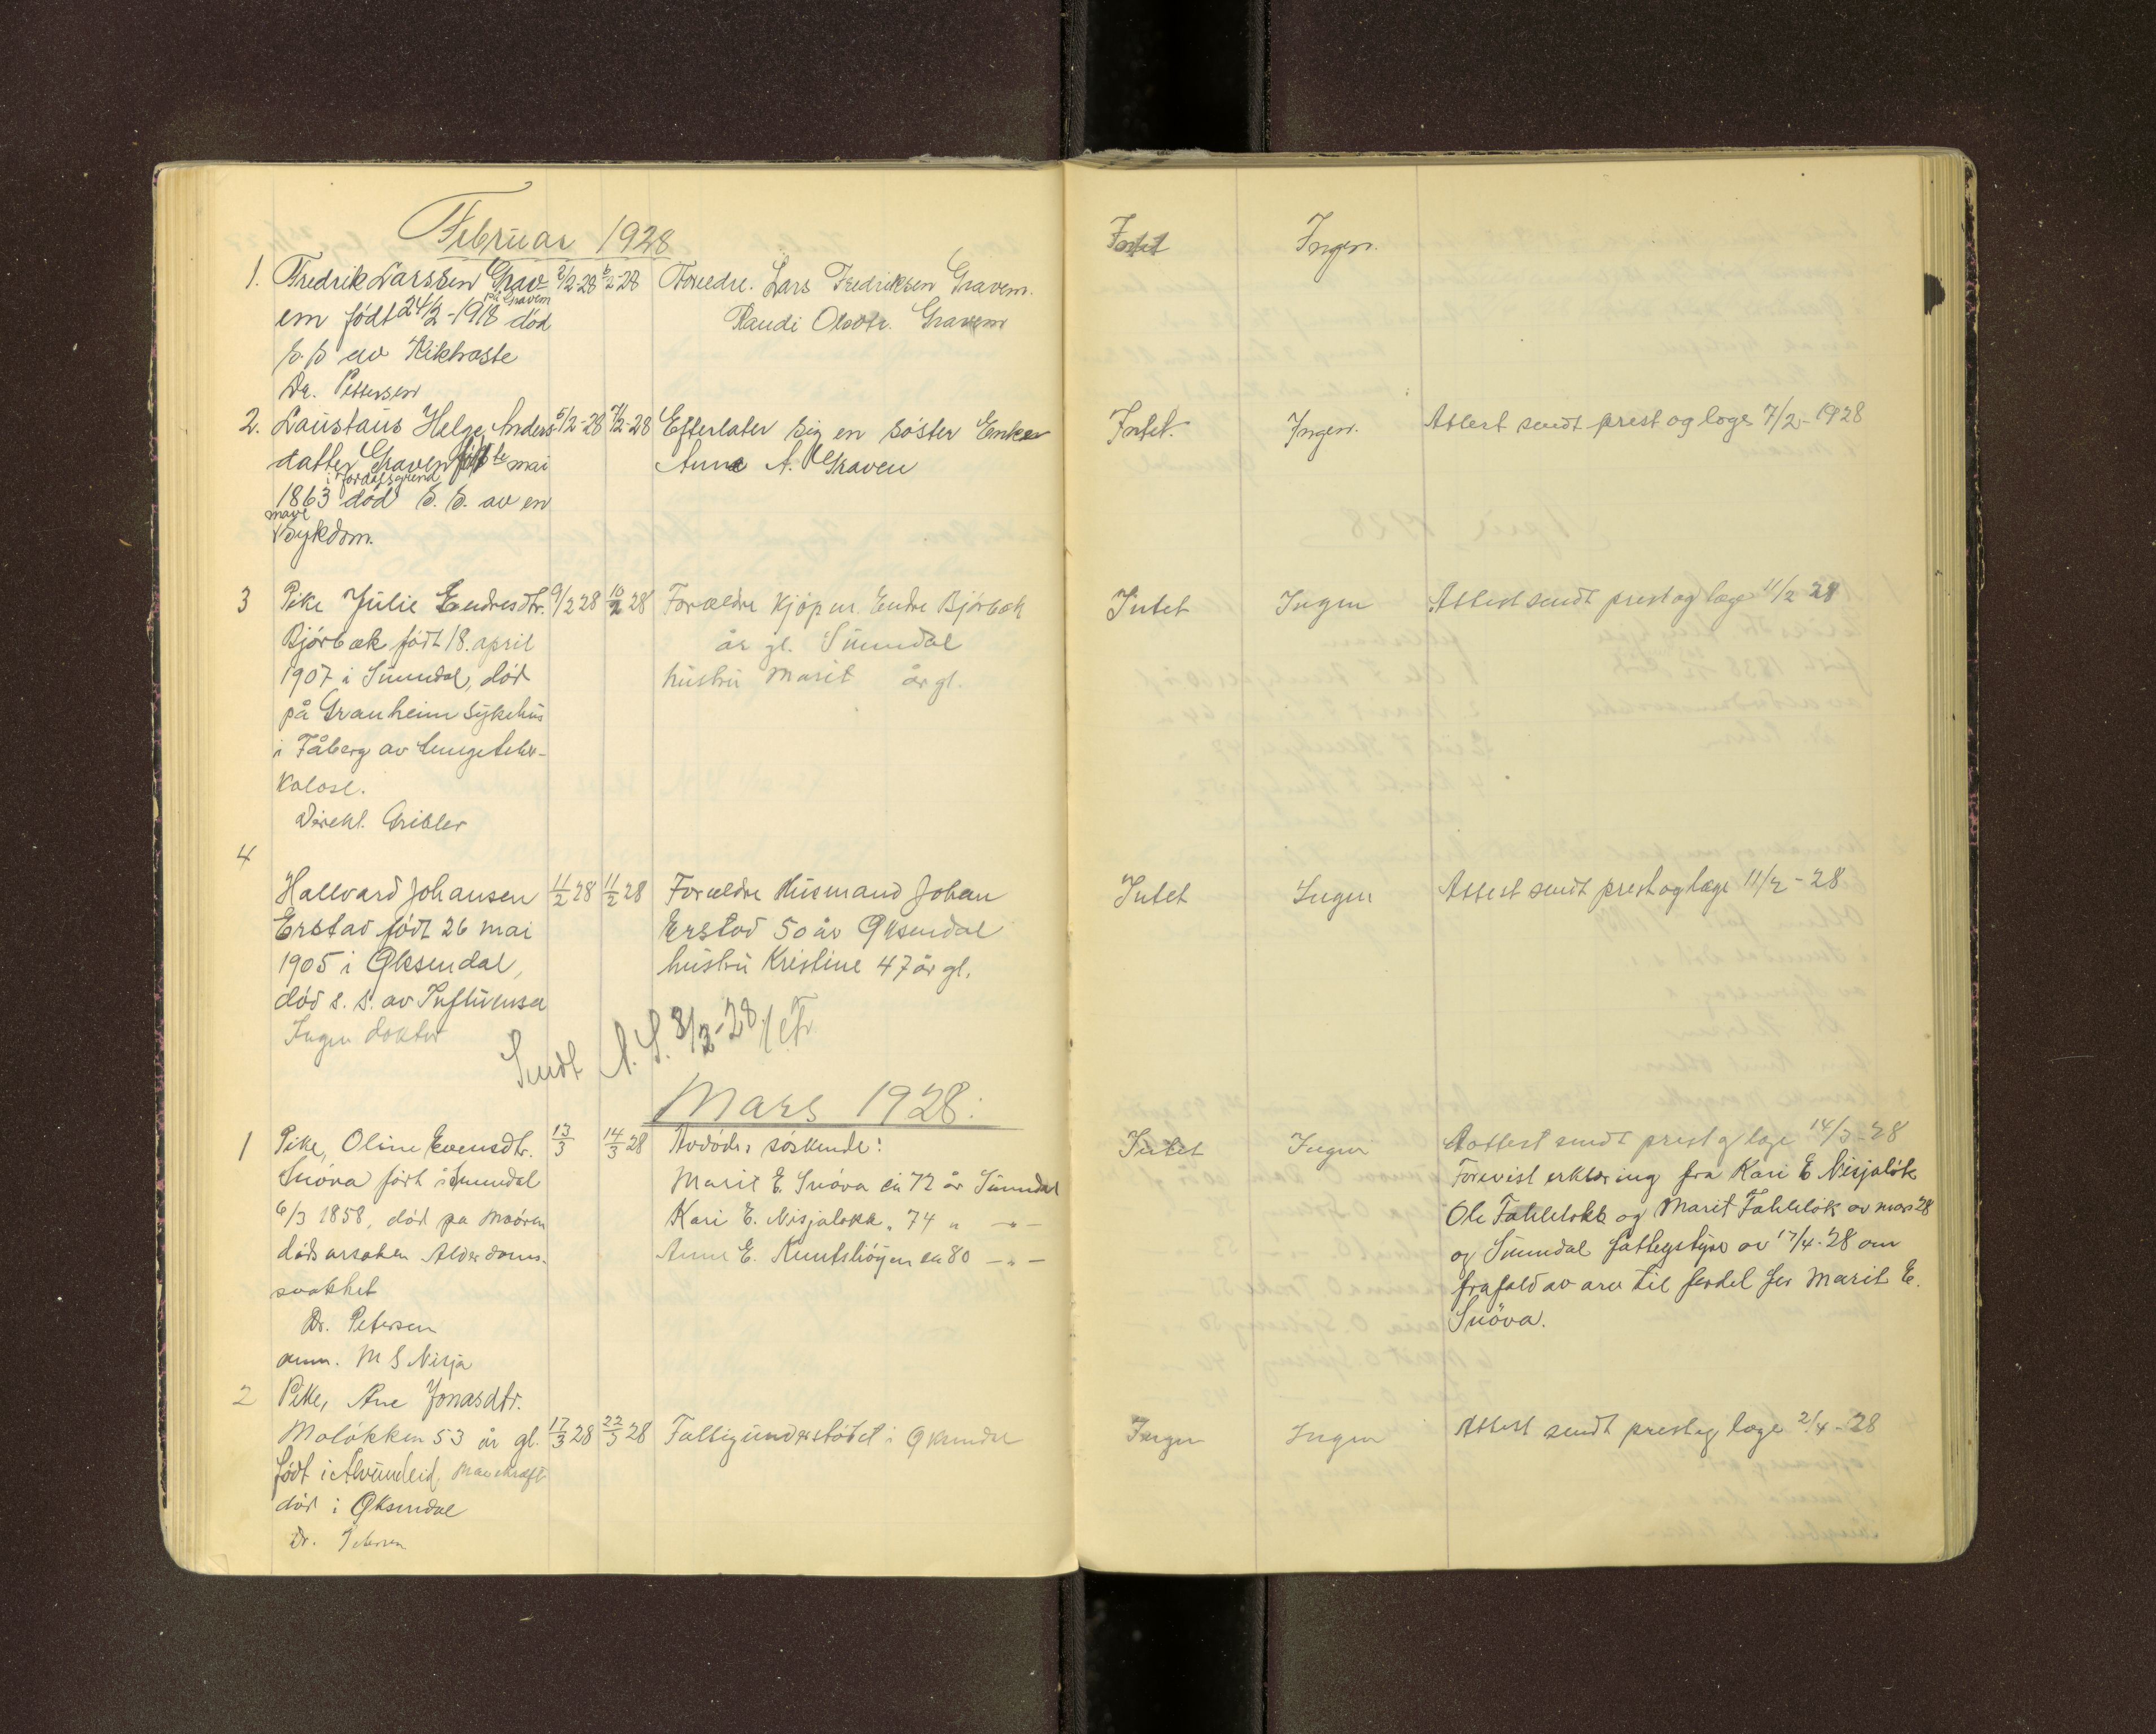 Februar 1928
1. Fredrik Larssen Grav- 2/2-28 6/2-28 Foreldre. Lars Fredriksen Gravem. Intet Ingen.
på Gravem
em født 24/2-1918 død Randi Olsdtr. Gravem
s. s. av Kikhoste
Dr. Pettersen
2. Helge Anders- 5/2-28 7/2-28 Efterlater sig en søster Enken Intet. Ingen. Attest sendt prest og læge 7/2-1928
datter Graven født mai Anne A. Graven
i Jordalsgrend
1863 død s. s. av en
mave
sykdom.
3 Pike Julie Endresdtr. 9/2 28 10/2 28 Forældre Kjøpm. Endre Bjørbæk Intet Ingen Attest sendt prest og læge 11/2 28
Bjørbæk født 18. april år gl. Sunndal
1907 i Sunndal, død hustru Marit år gl.
på Granheim sykehus
i Fåberg av lungetuber-
kolose.
Direkt. Gribler
4
Hallvard Johansen 11/2 28 11/2 28 Forældre Husmand Johan Intet Ingen Attest sendt prest og læge 11/2-28
Erstad født 26 mai Erstad 50 år Øksendal
1905 i Øksendal, hustru Kristine 47 år gl.
død s. s. av Influensa
Ingen doktor
Sendt 3/3-28
Mars 1928.
1 Pike, Oline Evensdtr. 13/3 14/3 28 Avdødes søskende: Intet Ingen Aattest sendt prest og læge 14/3-28
Snøva født i Sunndal Marit E. Snøva ca 72 år Sunndal Forevist erklæring fra Kari E Nisjaløk
6/3 1858, død pa Moøren Kari E. Nisjaløkk " 74 " -"- Ole Fahleløkk og Marit Fahleløk av mars 28
dødsarsaken Alderdoms- Anne E. ca 80 -"- og Sunndal fattigstyre av 17/4-28 om
svakhet frafald av arv til fordel for Marit E.
Dr. Petersen Snøva.
anm. M S Nisja
2 Pike, Ane Jonasdtr.
Moløkken 53 år gl. 17/3 28 22/3 28 Fattigunderstøtet i Øksendal Ingen Ingen Attest sendt prest og læge 2/4-28
født i Ålvundeid, Mavekræft
død i Øksendal
Dr. Petersen